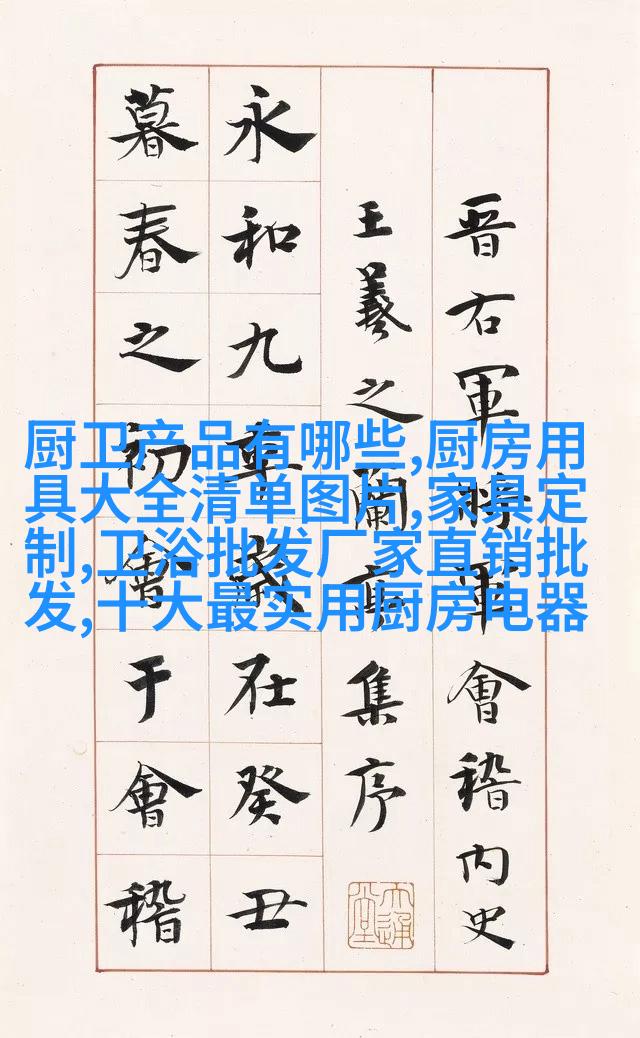 晋右軍將軍會稽内史
王羲之蘭亭集序
永和九年歲在癸丑
暮春之初會于會稽
厨卫产品有哪些,厨房用
具大全清单图片,家具定
制,卫浴批发厂家直销批
发,十大最实用厨房电器